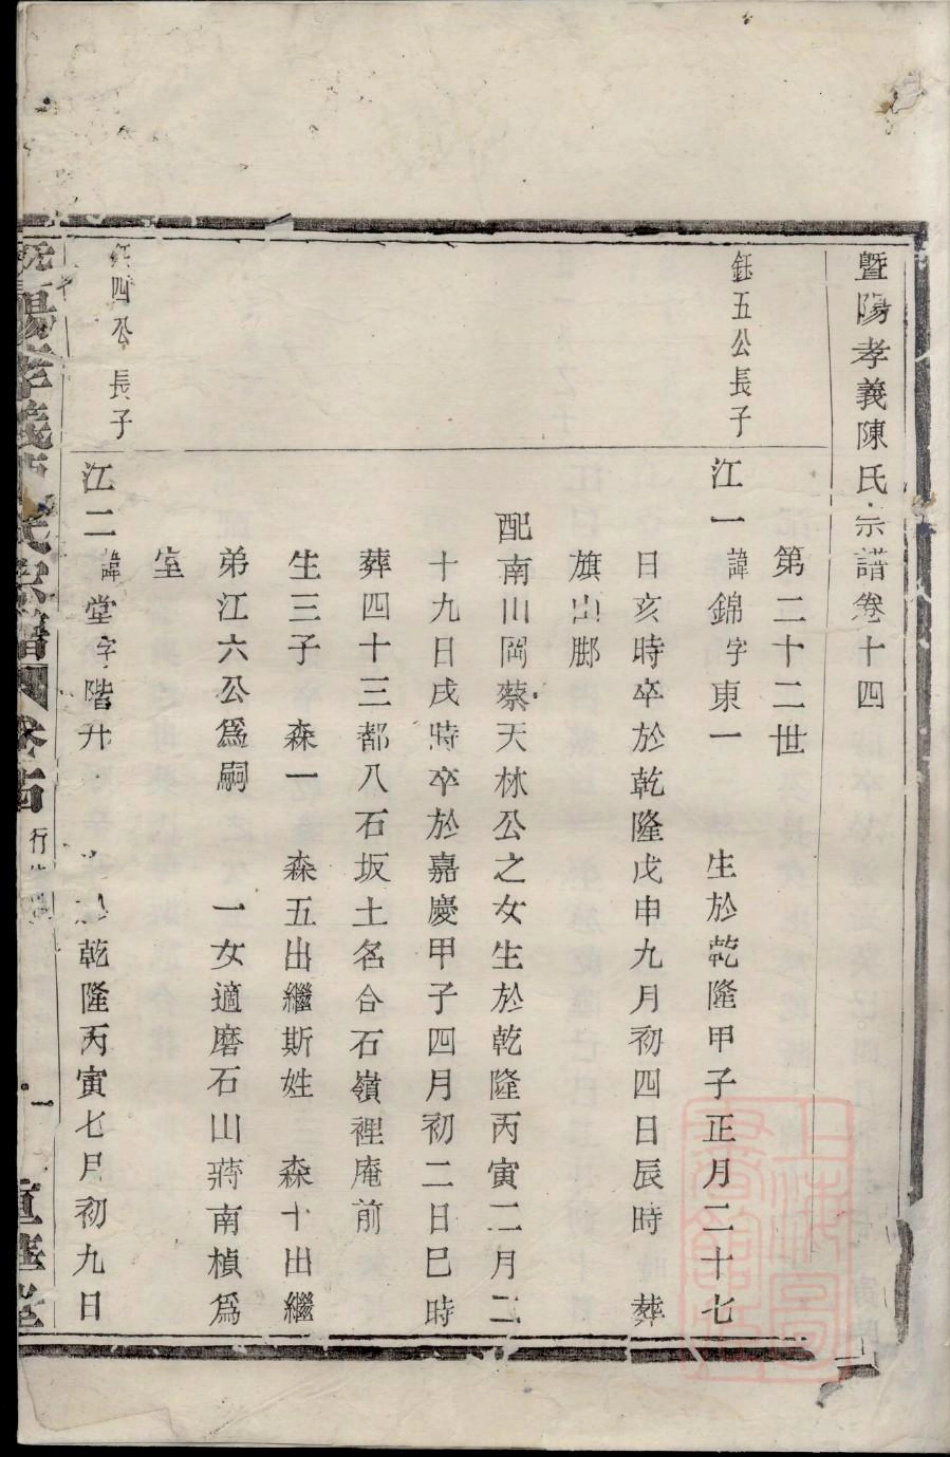 暨陽孝義陳氏宗譜卷十四
第二十二世
鈺五公長子
江一諱錦字東一 生於乾隆甲子正月二十七
日亥時卒於乾隆戊申九月初四日辰時 葬
旗山腳
配南川岡蔡天林公之女生於乾隆丙寅二月二
十九日戌時卒於嘉慶甲子四月初二日巳時
葬四十三都八石坂土名合石嶺裡庵前
生三子 森一 森五出繼斯姓 森十出繼
弟江六公爲嗣 一女適磨石山蔣南楨爲
室
四公長子
江二諱堂字階升 乾隆丙寅七月初九日
暨陽孝義陳氏宗譜 卷十四 行 一